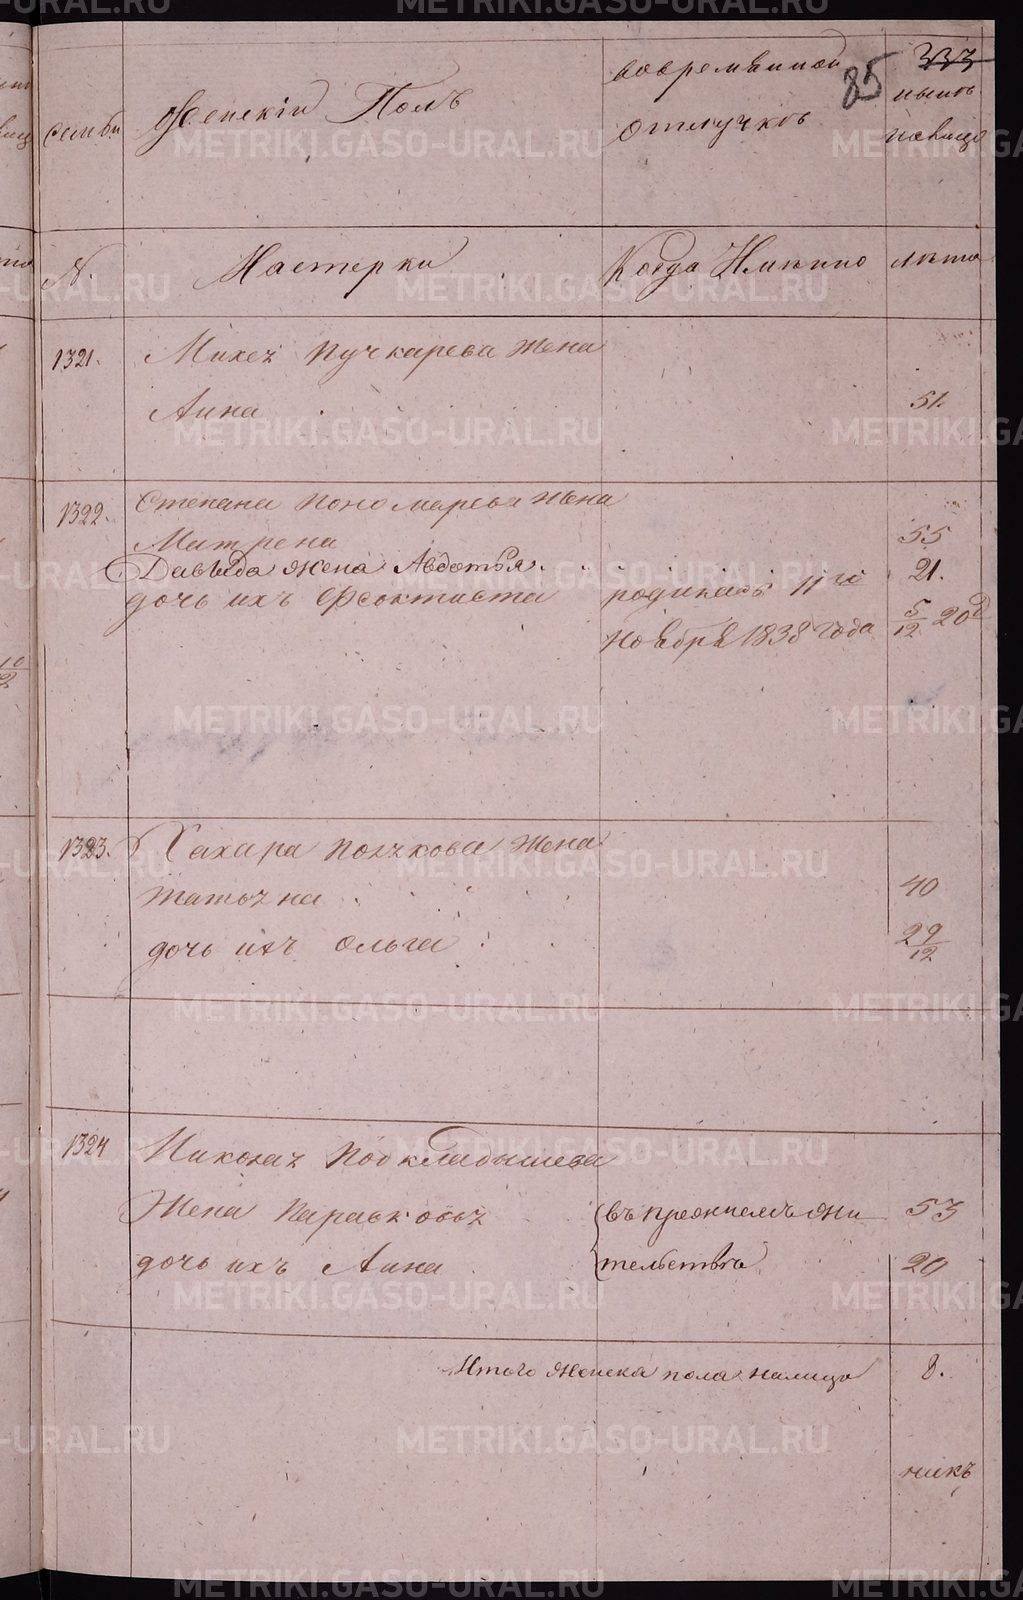 вовременной
333
85
семьи
Женскій Полъ
отлучкѣ
нынѣ
налицо
N.
Мастерки
Когда Имянно
лѣта
1321.
Михея Пучкарева жена
Анна
51.
1322.
Степана Пономарева жена
Матрена
55
Давыда жена Авдотья
21.
дочь ихъ Феоктиста
родилась 11го
Ноября 1838 года
5/12 20д
1323.
Захара жена
Татьяна
40
дочь ихъ Ольга
2 9/12
1324
Николая Подкладышева
Жена Парасковья
53
дочь ихъ Анна
тельствѣ
20
Итого женска пола налицо
8.
METRIKI.GASO-URAL.RU